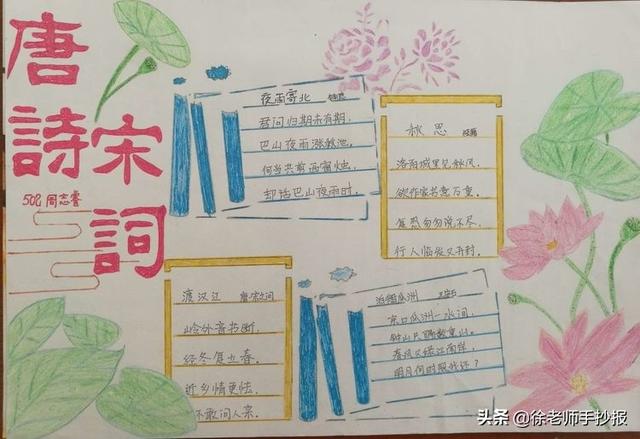 唐詩
宋詞
502 周志睿
夜雨寄北
君问归期未有期,
巴山夜雨涨秋池。
何当共剪西窗烛,
却话巴山夜雨时。
秋思 张籍
洛阳城里见秋风,
欲作家书意万重。
复恐匆匆说不尽,
行人临发又开封。
渡汉江 唐·宋之问
岭外音书断,
经冬复立春。
近乡情更怯,
不敢问人
泊船瓜洲
京口瓜洲一水间,
钟山只隔数重山。
春风又绿江南岸,
明月何时照我还?
头条 @徐老师手抄报